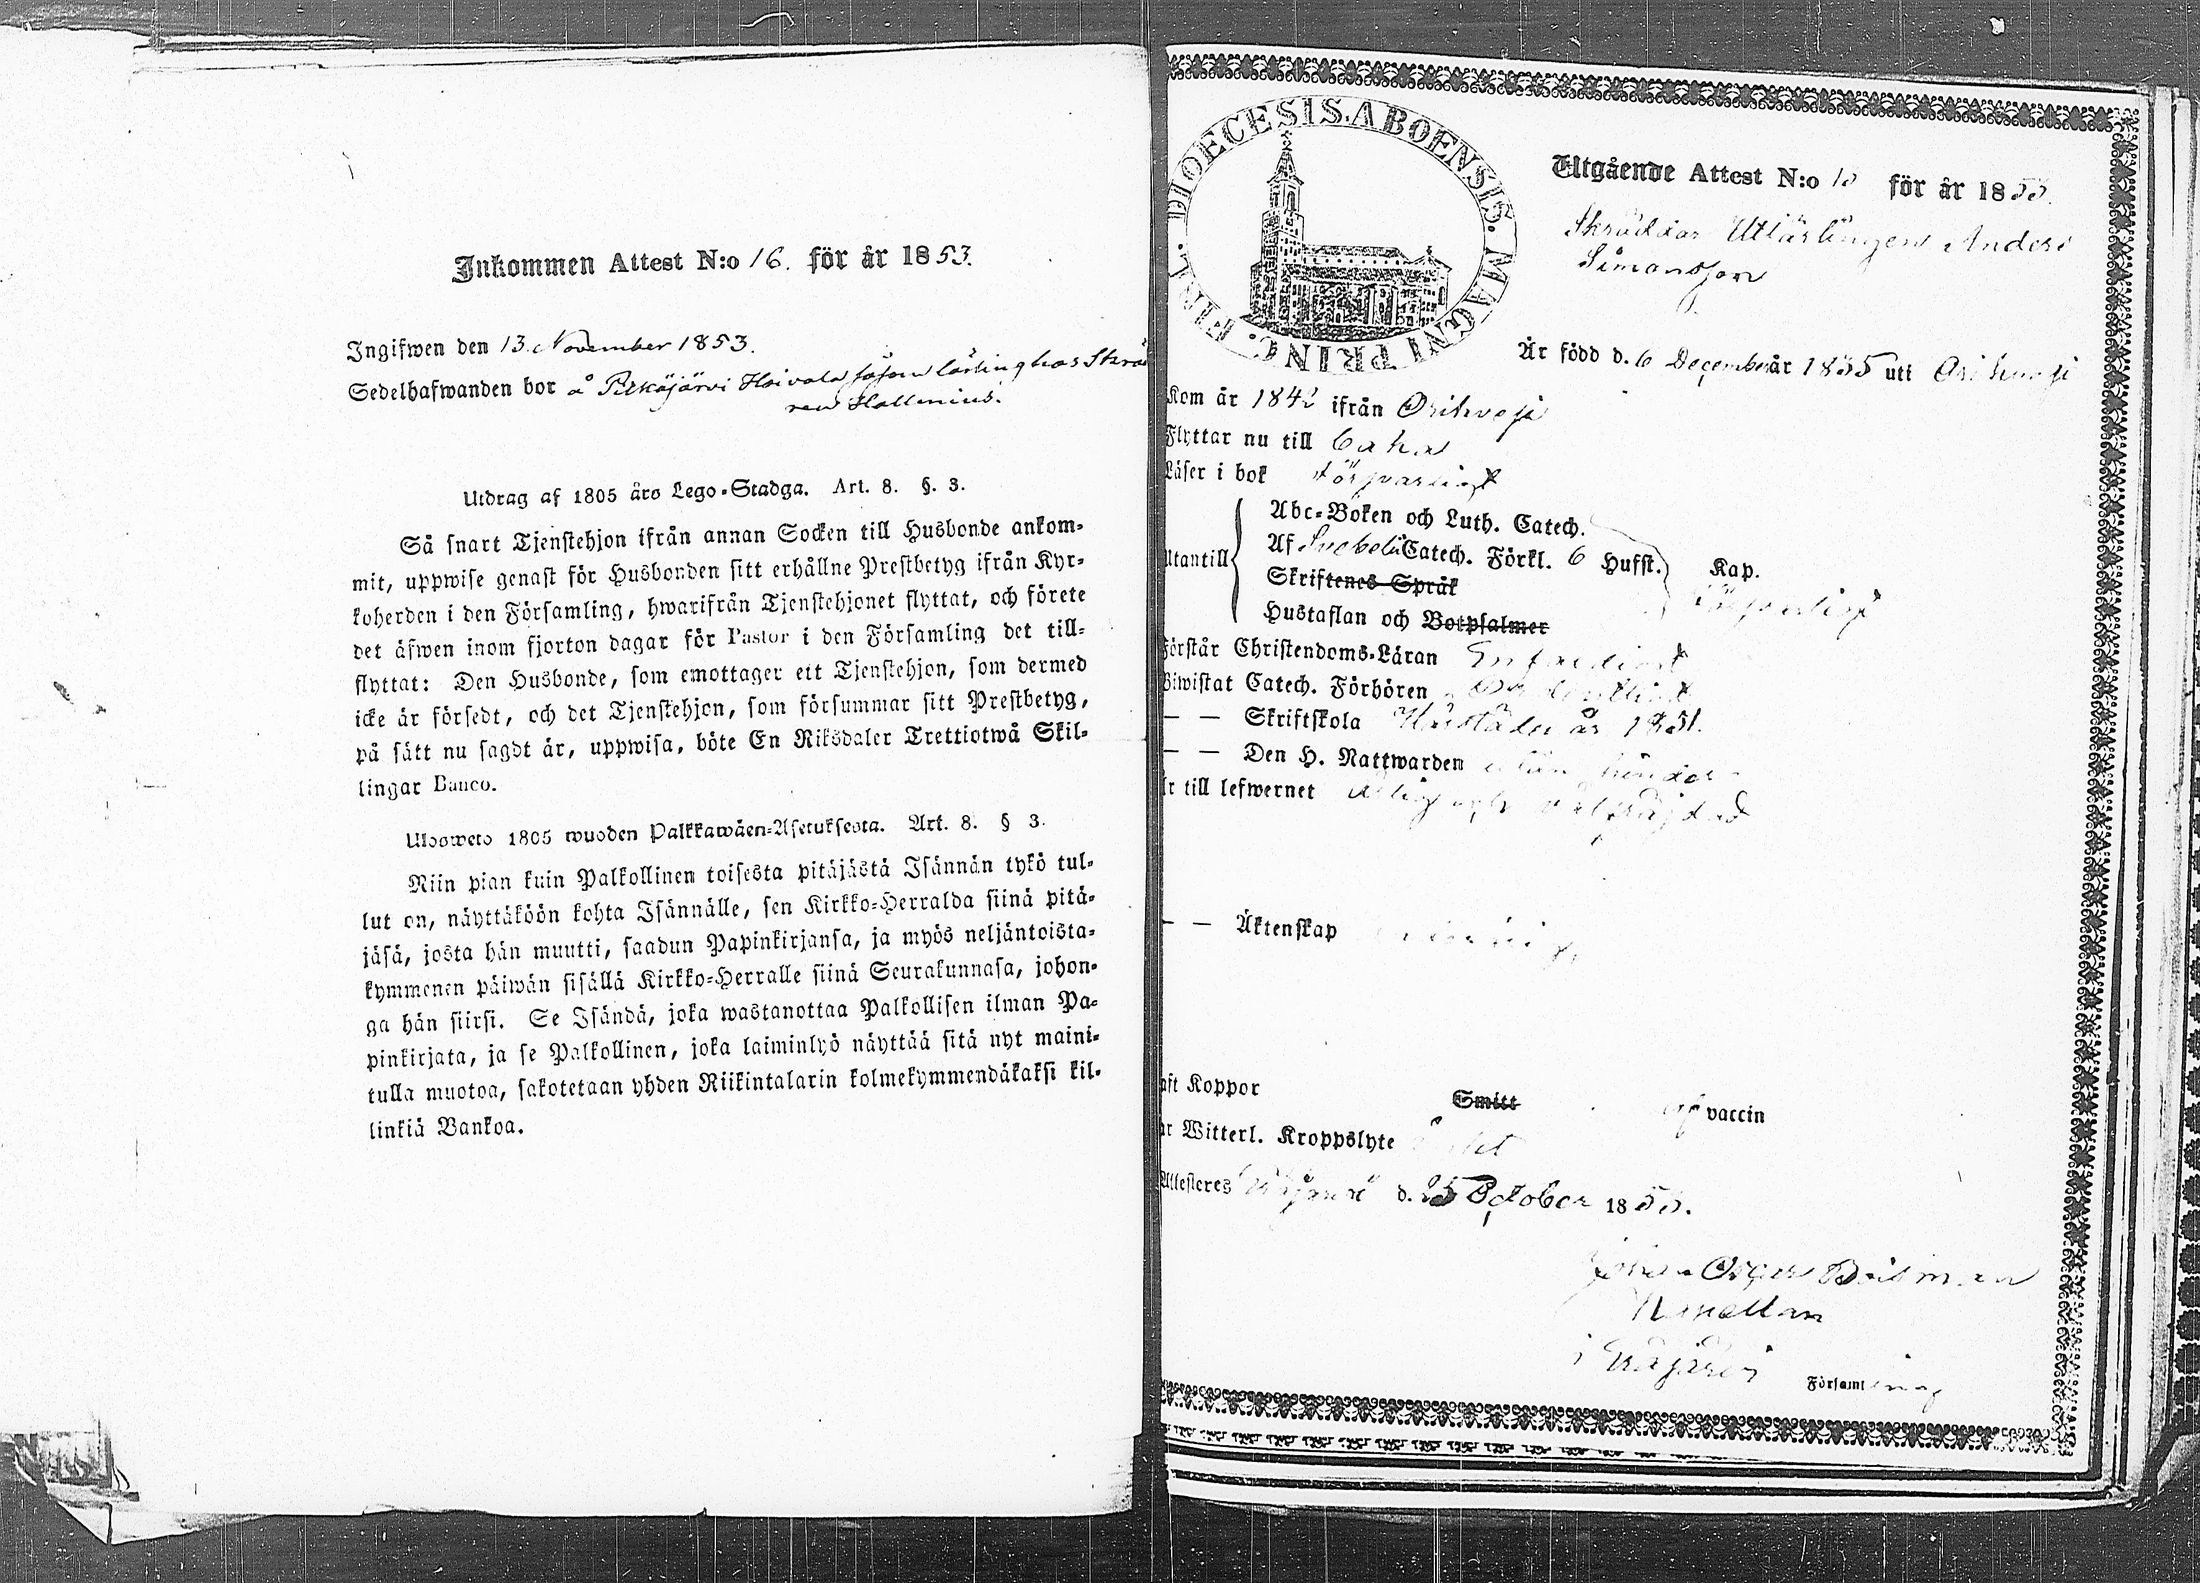 Inkommen Attest N:o 16. för år 1853.
Ingifwen den 13. November 1853.
Sedelhafwanden bor å Pitkäjärvi Hoivala såsom lärling hos Skräd
ren Hallenius.
Utdrag af 1805 års Lego-Stadga. Art. 8. §. 3.
Så snart Tjenstehjon ifrån annan Socken till Husbonde ankom-
mit, uppwise genast för Husbonden sitt erhållne Prestbetyg ifrån Kyr-
koherden i den Församling, hwarifrån Tjenstehjonet flyttat, och förete
det äfwen inom fjorton dagar för Pastor i den Församling det till-
flyttat: Den Husbonde, som emottager ett Tjenstehjon, som dermed
icke är försedt, och det Tjenstehjon, som försummar sitt Prestbetyg,
på sätt nu sagdt är, uppwisa, böte En Riksdaler Trettiotwå Skil-
lingar Banco.
Ulosweto 1805 wuoden Palkkawäen-Asetuksesta. Art. 8. § 3.
Niin pian kuin Palkollinen toisesta pitäjästä Isännän tykö tul-
lut on, näyttäköön kohta Isännälle, sen Kirkko-Herralda siinä pitä-
jäsä, josta hän muutti, saadun Papinkirjansa, ja myös neljäntoista-
kymmenen päiwän sisällä Kirkko-Herralle siinä Seurakunnasa, johon-
ga hän siirsi. Se Isändä, joka wastanottaa Palkollisen ilman Pa-
pinkirjata, ja se Palkollinen, joka laiminlyö näyttää sitä nyt maini-
tulla muotoa, sakotetaan yhden Riikintalarin kolmekymmendäkaksi kil-
linkiä Bankoa.
DIOECESIS. ABOENSIS. MAGNI PRINC. FINL.
Utgående Attest N:o 10 för år 1853.
Skräddar Utlärlingen Anders
Simonsson
Är född d. 6 December år 1835 uti Orihvesi
Kom år 1842 ifrån Orihvesi
Flyttar nu till
Läser i bok försvarligt
Utantill
Abc-Boken och Luth. Catech.
Af Svebelii Catech. Förkl. 6 Hufst. Kap.
Skriftenes Språk försvarligt
Hustaflan och Botpsalmer
Förstår Christendoms-Läran Enfaldigt
Biwistat Catech. Förhören Ordentligt
— — Skriftskola år 1851.
— — Den H. Nattwarden utan hinder
Är till lefwernet och välfrejdad
— — Äktenskap
aft Koppor Smitt af vaccin
ar Witterl. Kroppslyte Intet
Attesteres d. 25 October 1853.
i Församling